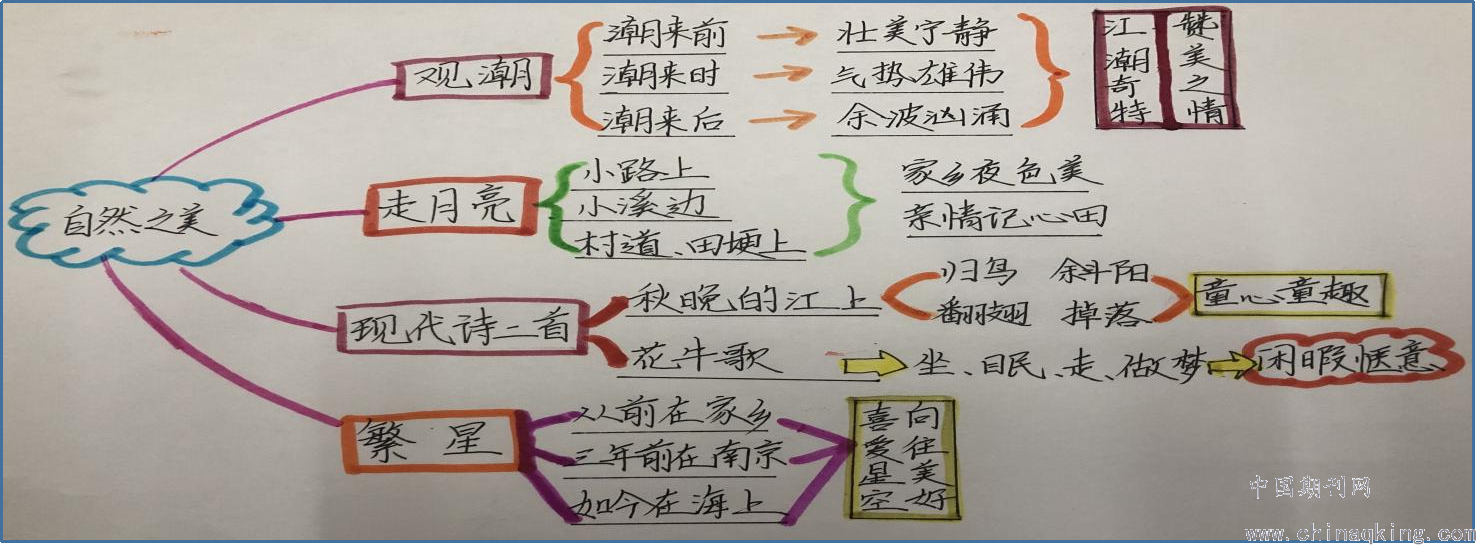 自然之美
观潮
潮来前
壮美宁静
潮来时
气势雄伟
潮来后
余波汹涌
江潮奇特
赞美之情
走月亮
小路上
小溪边
村道、田埂上
家乡夜色美
亲情记心田
现代诗二首
秋晚的江上
归鸟 斜阳
翻翅 掉落
童心童趣
花牛歌
坐、眠、走、做梦
闲暇惬意
繁星
从前在家乡
三年前在南京
如今在海上
喜爱星空
向往美好
中国期刊网
www.chinaqking.com